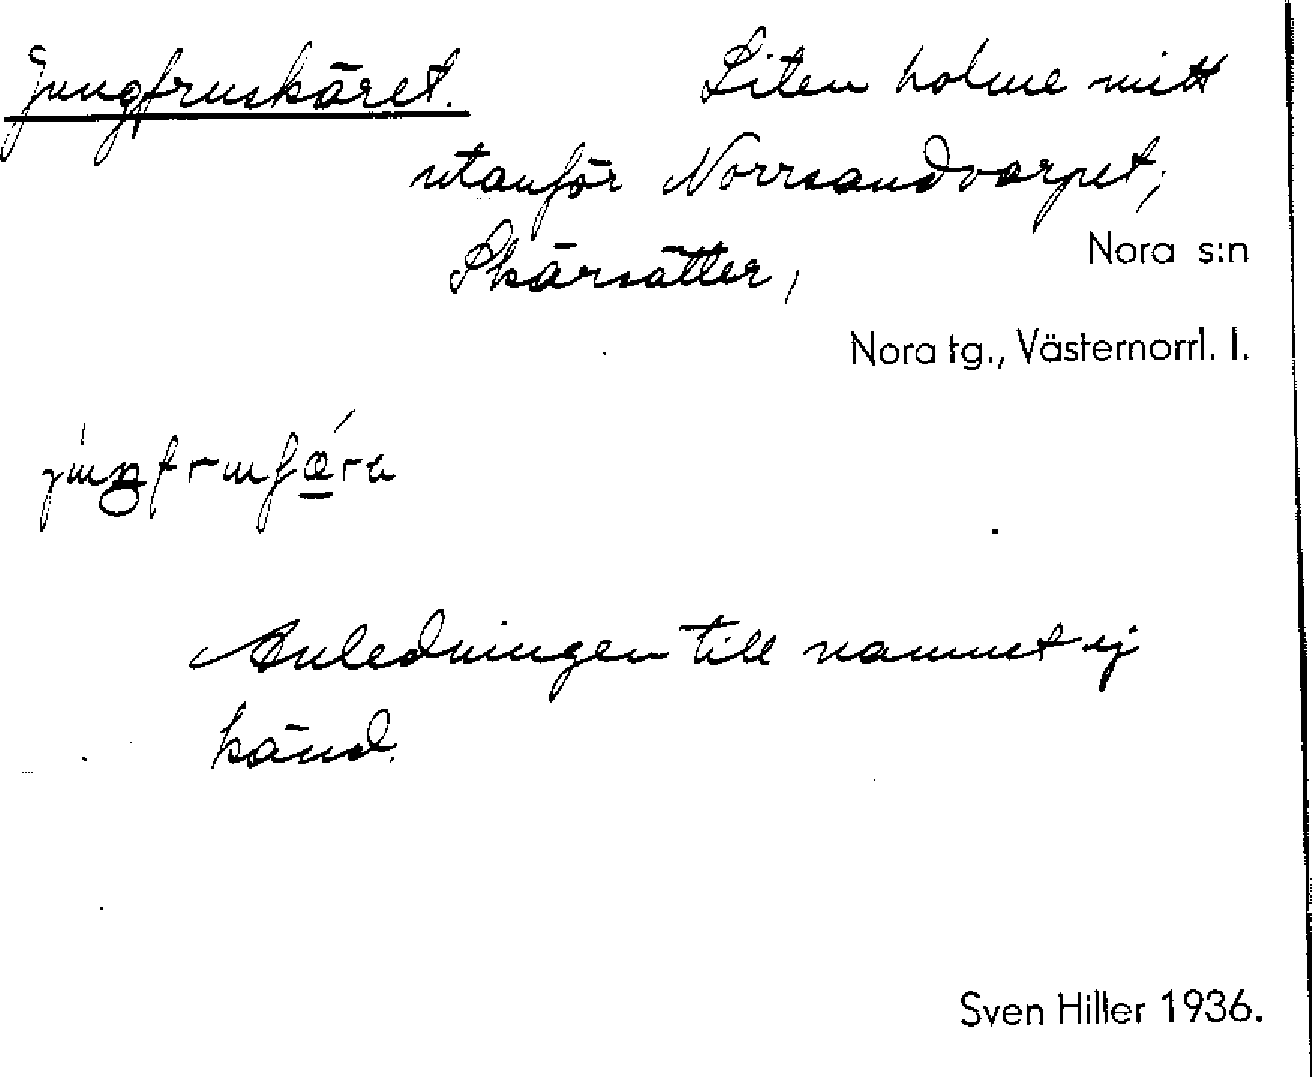 Jungfruskäret. Liten holme mitt
utanför Norrsandvarpet,
Skärsätter,
Nora s:n
Nora tg., Västernorrl. l.
Anledningen till namnet ej
känd.
Sven Hiller 1936.